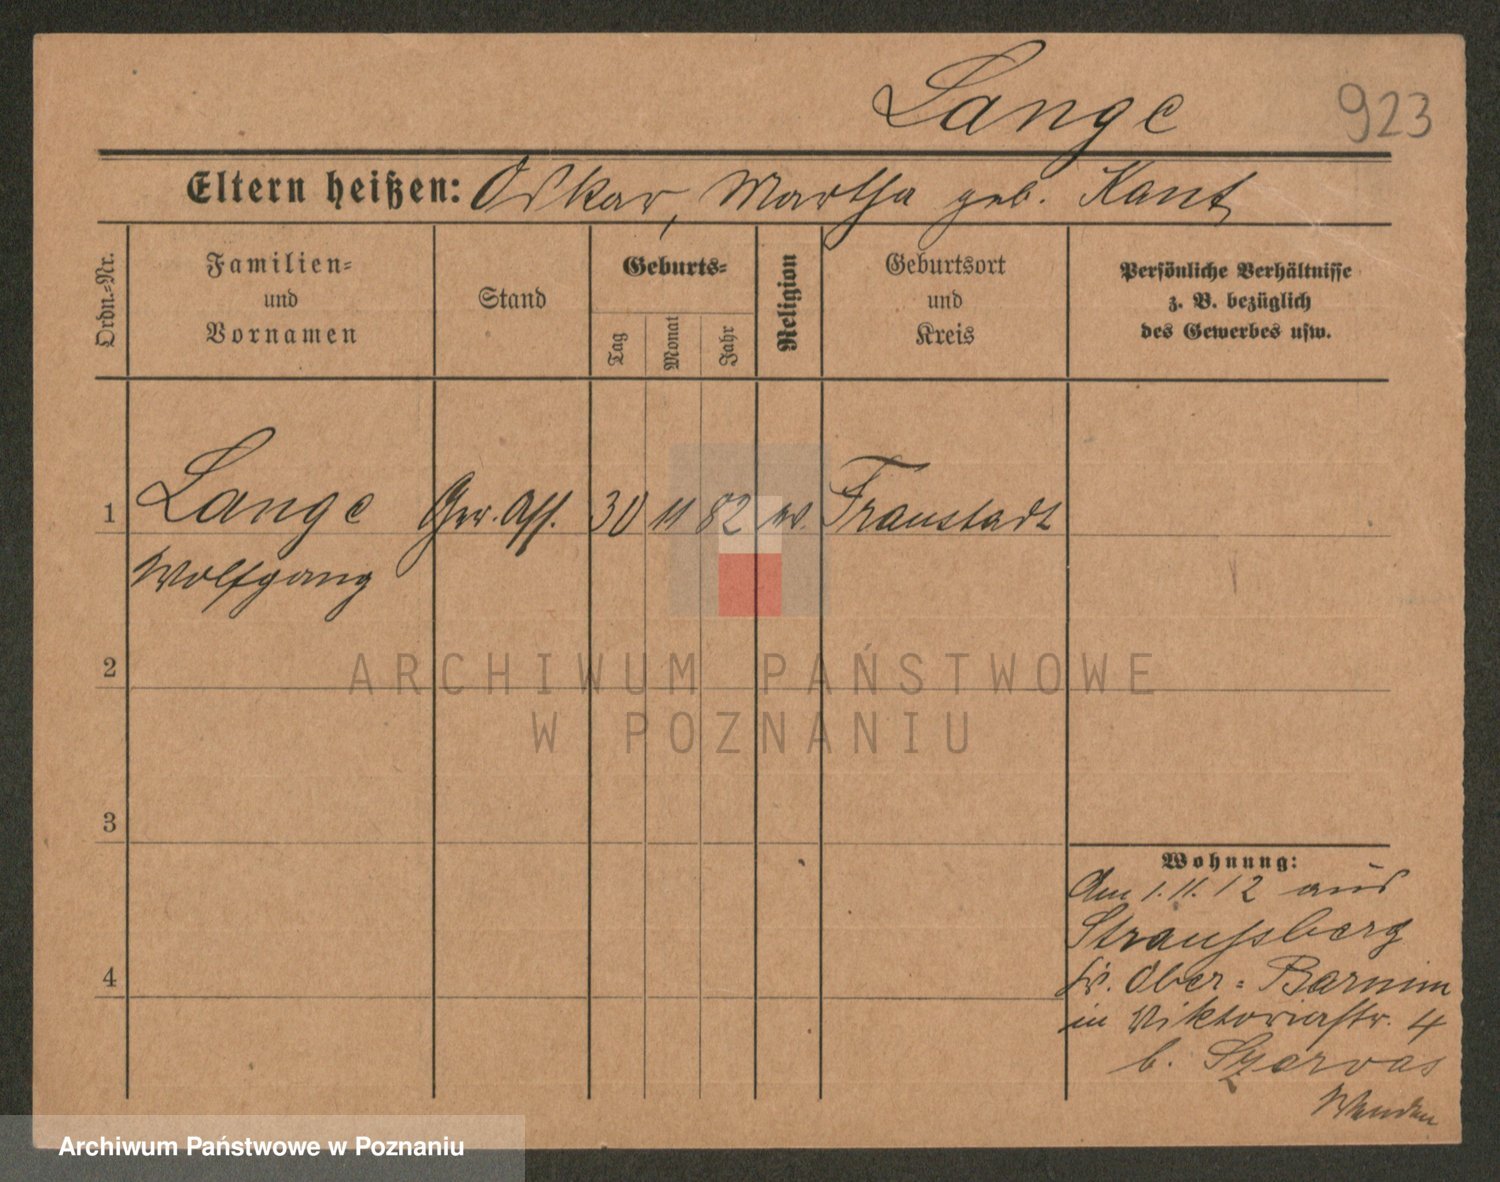 Lange 923
Eltern heißen: Oskar, Martha geb. Kant
Ordn.-Nr.
Familien-
und
Vornamen
Stand
Geburts-
Tag
Monat
Jahr
Religion
Geburtsort
und
Kreis
Persönliche Verhältnisse
z. B. bezüglich
des Gewerbes usw.
1 Lange Ger. Ass. 30 11 82 ev. Fraustadt
Wolfgang
2
3
4
Wohnung:
Am 1.11.12 aus
Straussberg
Kr. Ober-Barnim
in Viktoriastr. 4
b. Szarvas
Wenden
ARCHIWUM PAŃSTWOWE
W POZNANIU
Archiwum Państwowe w Poznaniu